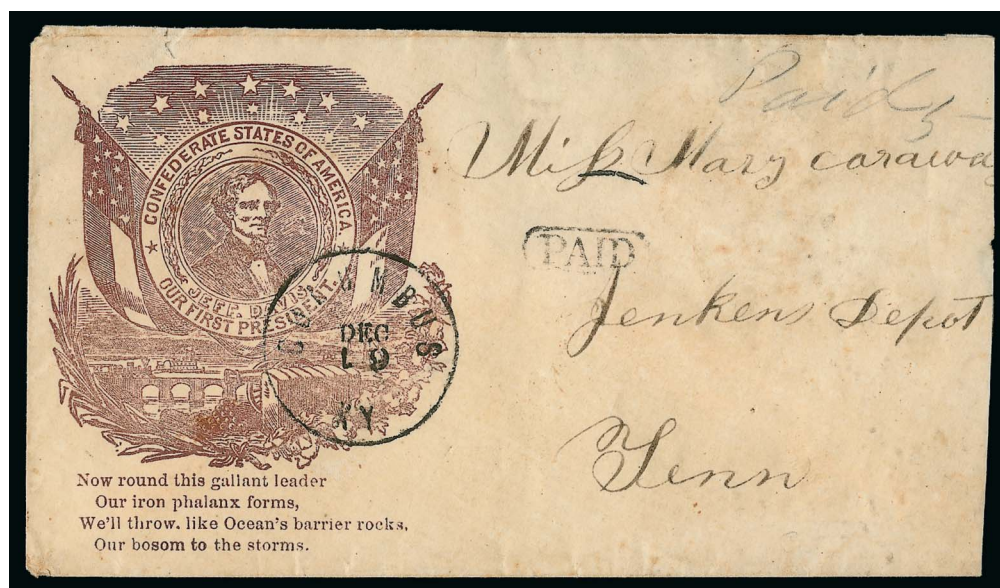 CONFEDERATE STATES OF AMERICA.
JEFF. DAVIS
OUR FIRST PRESIDENT.
COLUMBUS
DEC
19
KY
Now round this gallant leader
Our iron phalanx forms,
We'll throw. like Ocean's barrier rocks,
Our bosom to the storms.
Paid 5
Miſs Mary caraway
PAID
Jenkens Depot
Tenn